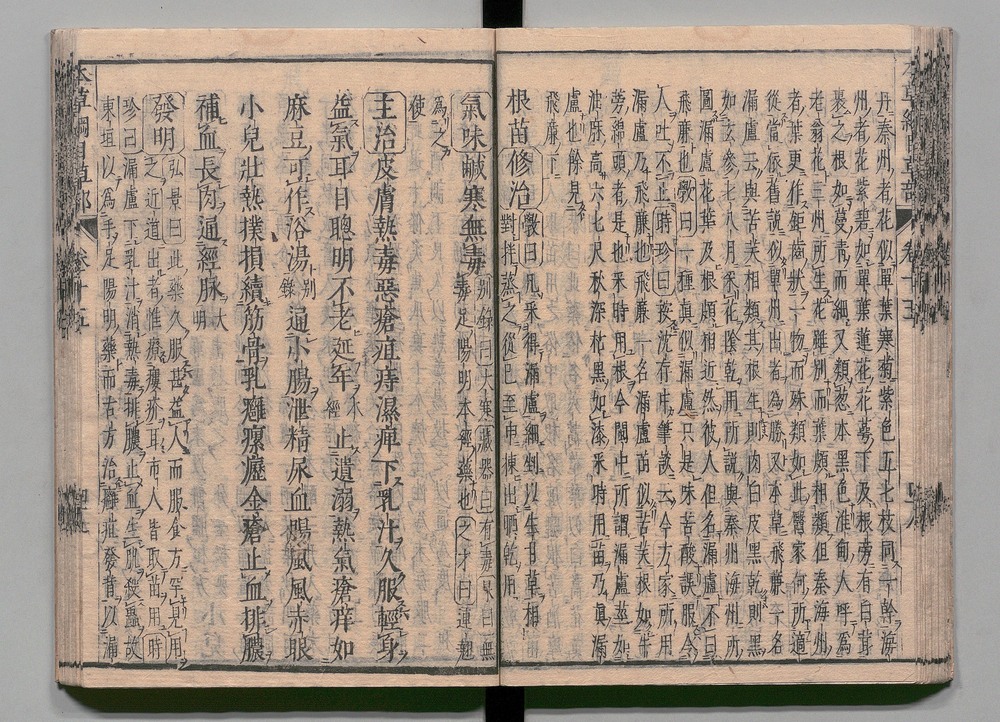 丹秦州者花似單葉寒菊紫色五七枝同一幹海
州者花紫碧如單葉蓮花花萼下及根旁有白茸
裹之根如蔓菁而細又類葱本黑色淮甸人呼爲
老翁花三州所生花雖別而葉頗相類但秦海州
者葉更作鋸齒狀一物而殊類如此醫家何所適
從當依舊說以單州出者爲勝又本草飛廉一名
漏盧云與苦芙相類其根生則肉白皮黑乾則黑
如玄參七八月采花陰乾用所說與秦州海州所
圖漏盧花葉及根頗相近然彼人但名漏盧不曰
飛廉也斅曰一種真似漏盧只是味苦酸誤服令
人吐不止時珍曰按沈存中筆談云今方家所用
漏盧乃飛廉也飛廉一名漏盧苗似苦芙根如牛
蒡綿頭者是也采時用根今閩中所謂漏盧莖如
油麻高六七尺秋深枯黑如漆采時用苗乃真漏
盧也餘見
飛廉下
根苗修治斅曰凡采得漏盧細剉以生甘草相
對拌蒸之從巳至申揀出晒乾用
氣味鹹寒無毒別錄曰大寒藏器曰有毒杲曰無
毒足陽明本經藥也之才曰連翹
爲之
使
主治皮膚熱毒惡瘡疽痔濕痺下乳汁久服輕身
益氣耳目聰明不老延年本經止遺溺熱氣瘡痒如
麻豆可作浴湯別錄通小腸泄精尿血腸風風赤眼
小兒壯熱撲損續筋骨乳癰瘰癧金瘡止血排膿
補血長肉通經脉大明
發明弘景曰此藥久服甚益人而服食方罕見用
之近道出者惟療瘻疥耳市人皆取苗用時
珍曰漏盧下乳汁消熱毒排膿止血生肌殺蟲故
東垣以爲手足陽明藥而古方治癰疽發背以漏
本草綱目草部 卷十五